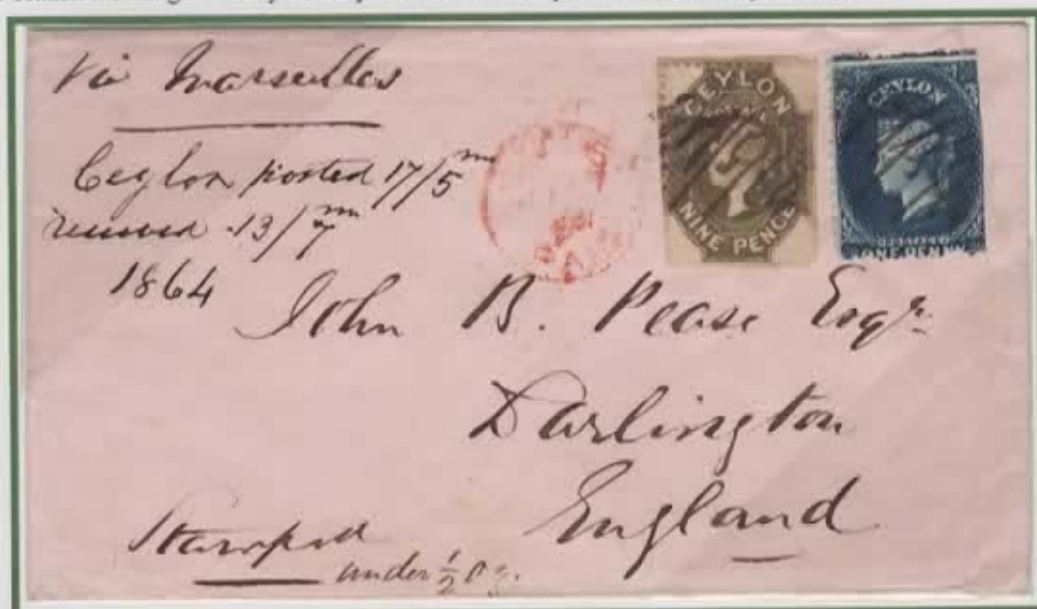 Via Marseilles
Ceylon posted 17/5 m
received 13/7 m
1864
CEYLON
NINE PENCE
CEYLON
ONE PENNY
John B. Pease Esqr.
Darlington
England
Stamped
under ½ oz.